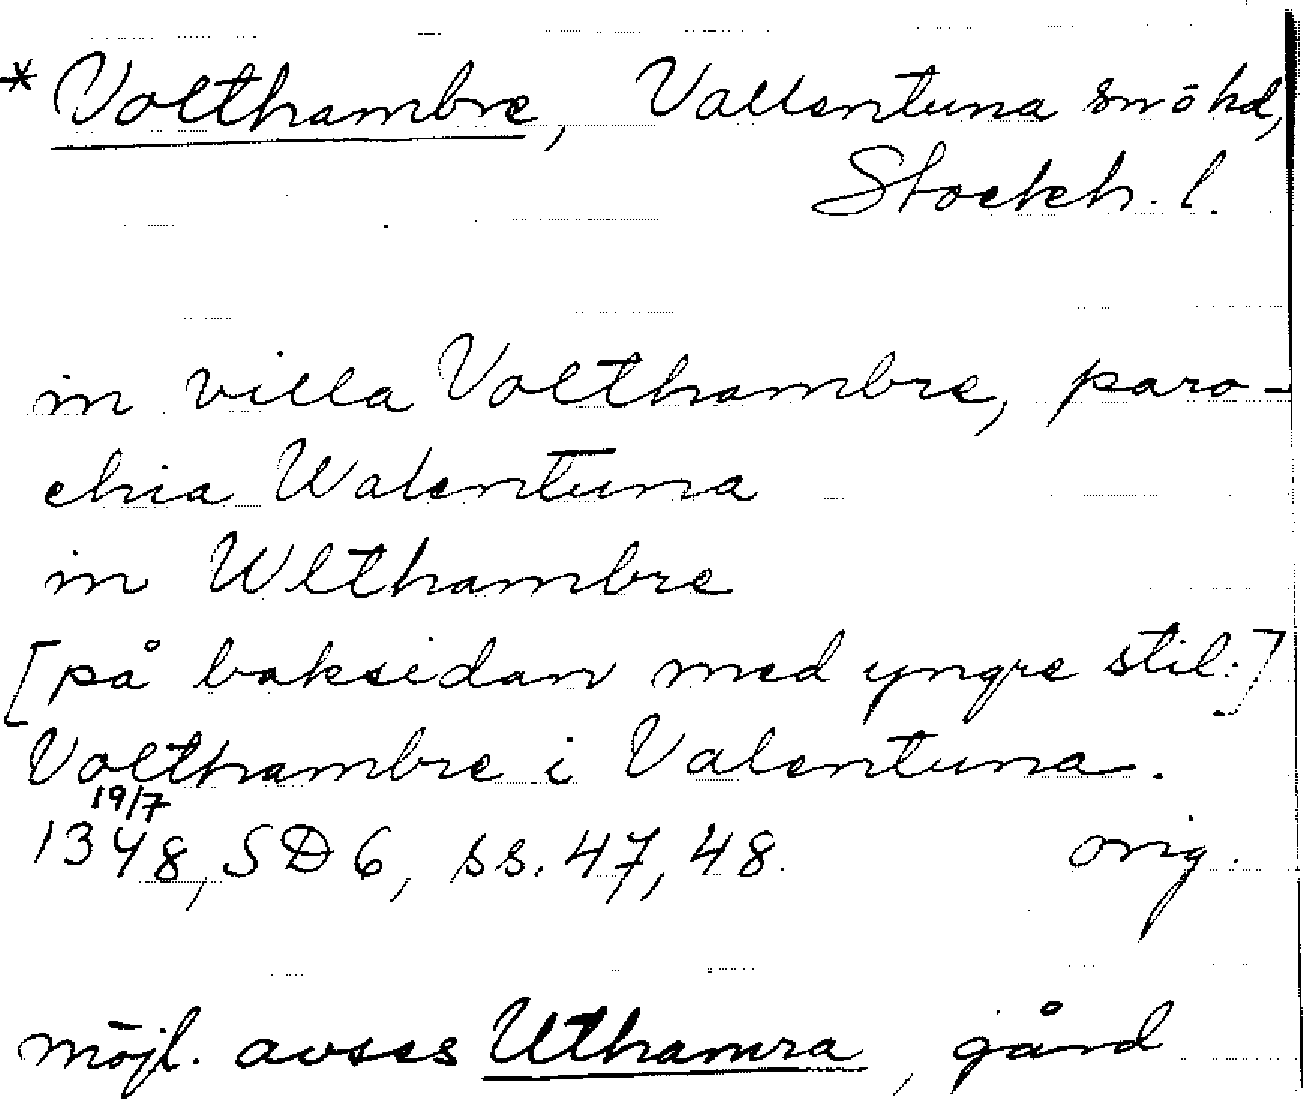 * Volthambre, Vallentuna sn ö hd,
Stockh. l.
in villa Volthambre, paro-
chia Walentuna
in Wlthambre
[på baksidan med yngre stil:]
Volthambre i Valentuna.
19/7
1348, SD 6, ss. 47, 48. orig.
möjl. avses Uthamra, gård